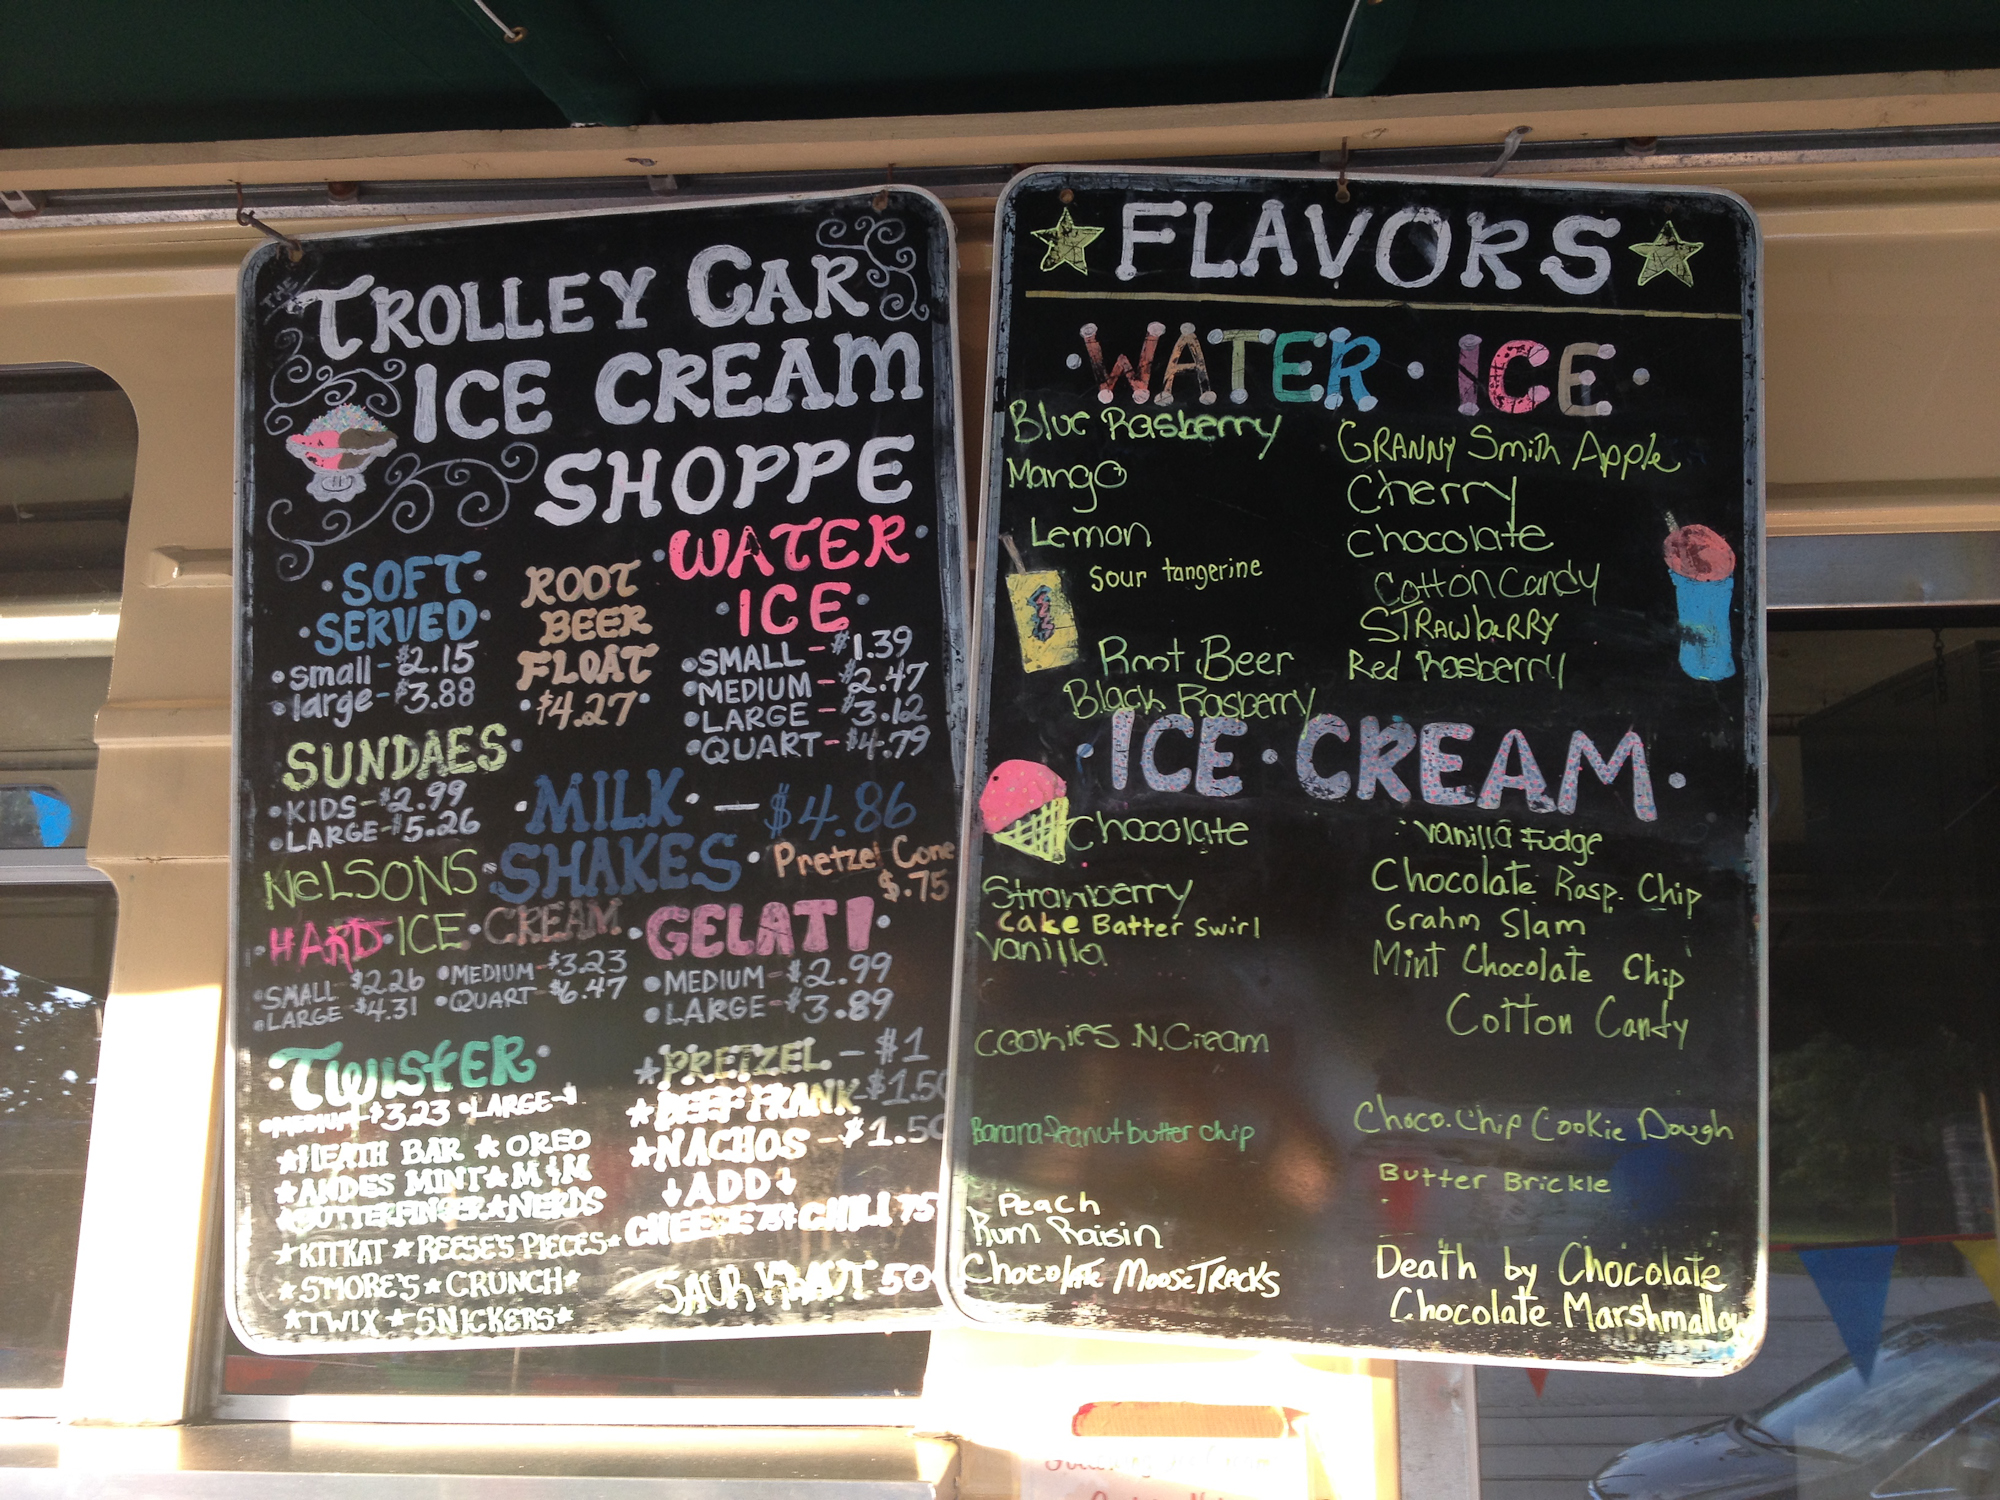 THE
TROLLEY CAR
ICE CREAM
SHOPPE
SOFT
SERVED
small - $2.15
large - $3.88
ROOT
BEER
FLOAT
$4.27
WATER
ICE
SMALL - $1.39
MEDIUM - $2.47
LARGE - $3.12
QUART - $4.79
SUNDAES
KIDS - $2.99
LARGE - $5.26
MILK — $4.86
SHAKES
Pretzel Cone
$.75
NELSONS
HARD ICE CREAM
SMALL $2.26 MEDIUM - $3.23
LARGE $4.31 QUART - $6.47
GELATI
MEDIUM - $2.99
LARGE - $3.89
TWISTER
MEDIUM - $3.23 LARGE - $
HEATH BAR ★ OREO
★ANDES MINT★M&M
★BUTTERFINGER★NERDS
★KITKAT★REESE'S PIECES★
★S'MORE'S★CRUNCH★
★TWIX★SNICKERS★
★PRETZEL - $1
★BEEF FRANK - $1.50
★NACHOS - $1.50
↓ADD↓
CHEESE 75¢ CHILI 75
SAUR KRAUT 50
★ FLAVORS ★
WATER ICE
Blue Rasberry
Mango
Lemon
Sour tangerine
Root Beer
Black Rasberry
GRANNY Smith Apple
Cherry
Chocolate
Cotton Candy
STRAWbeRRY
Red Rasberry
ICE CREAM
Chocolate
Stranberry
Cake Batter Swirl
Vanilla
Cookies N. Cream
Banana Peanut butter chip
Peach
Rum Raisin
Chocolate MooseTRACKS
Vanilla Fudge
Chocolate Rasp. Chip
Grahm Slam
Mint Chocolate Chip
Cotton Candy
Choco. Chip Cookie Dough
Butter Brickle
Death by Chocolate
Chocolate Marshmallow